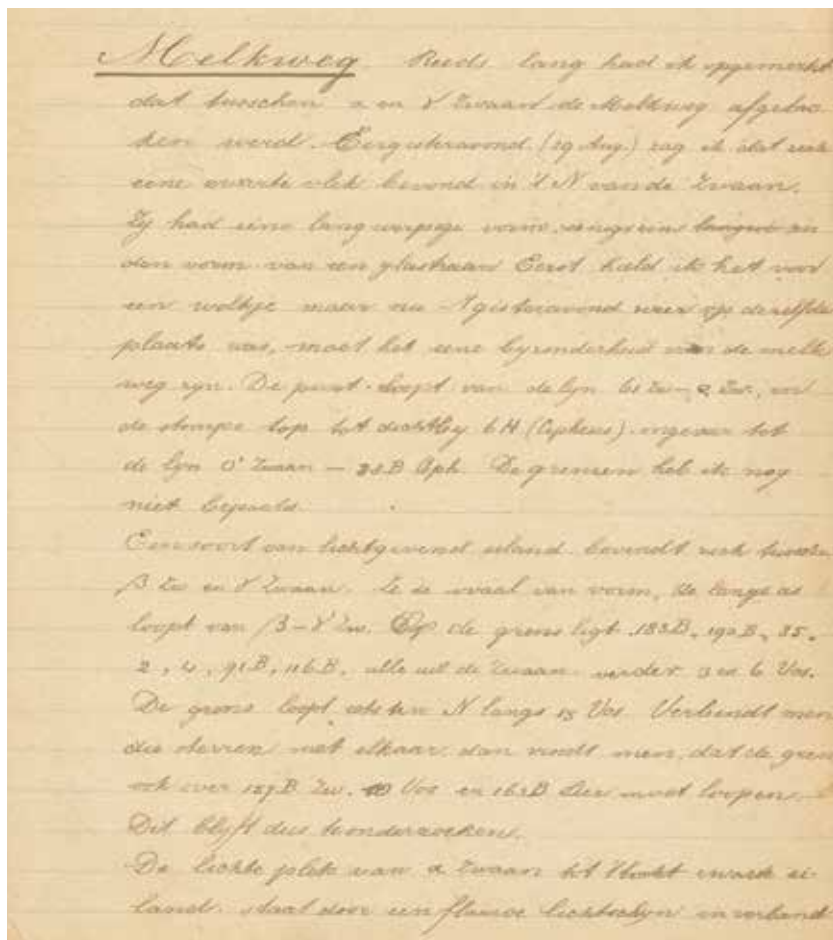 Melkweg. Reeds lang had ik opgemerkt
dat tusschen α en γ Zwaan de Melkweg afgebro
ken werd. Eergisteravond (29 Aug.) zag ik dat zich
eene zwarte vlek bevond in 't N van de Zwaan.
Zij had eene langwerpige vorm, eenigszins langer in
den vorm van een glastraan. Eerst hield ik het voor
een wolkje maar nu 't gisteravond weer op dezelfde
plaats was, moet het eene byzonderheid van de melk
weg zyn. De punt loopt van de lyn 61 Zw – Zw., en
de stompe top tot dichtby 6 H (Cepheus) ongeveer tot
de lyn Zwaan – 32B Cph. De grenzen heb ik nog
niet bepaald.
Een soort van lichtgevend eiland bevindt zich tusschen
β Zw en γ Zwaan. Ze is ovaal van vorm, de lange as
loopt van β – γ Zw. Op de grens ligt 183B, 190B, 35,
2, 4, 91B, 116B, alle uit de Zwaan verder 3 en 6 Vos.
De grens loopt ten N langs 15 Vos. Verbindt men
die sterren met elkaar dan vindt men, dat de grens
ook over 157B Zw. 10 Vos en 163B Lier moet loopen.
Dit blyft dus te onderzoeken.
De lichte plek van α Zwaan tot 't zwarte ei-
land staat door een flauwe lichtschyn in verband